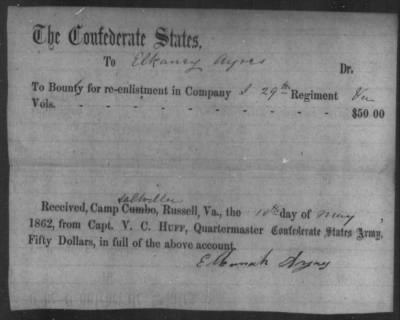 The Confederate States,
To Elkaney Ayres Dr.
To Bounty for re-enlistment in Company I 29th Regiment Va
Vols. - - - - - - - - - - $50 00
Saltville
Received, Camp Cumbo, Russell, Va., the 10th day of May,
1862, from Capt. V. C. HUFF, Quartermaster Confederate States Army,
Fifty Dollars, in full of the above account.
Elkanah Ayres